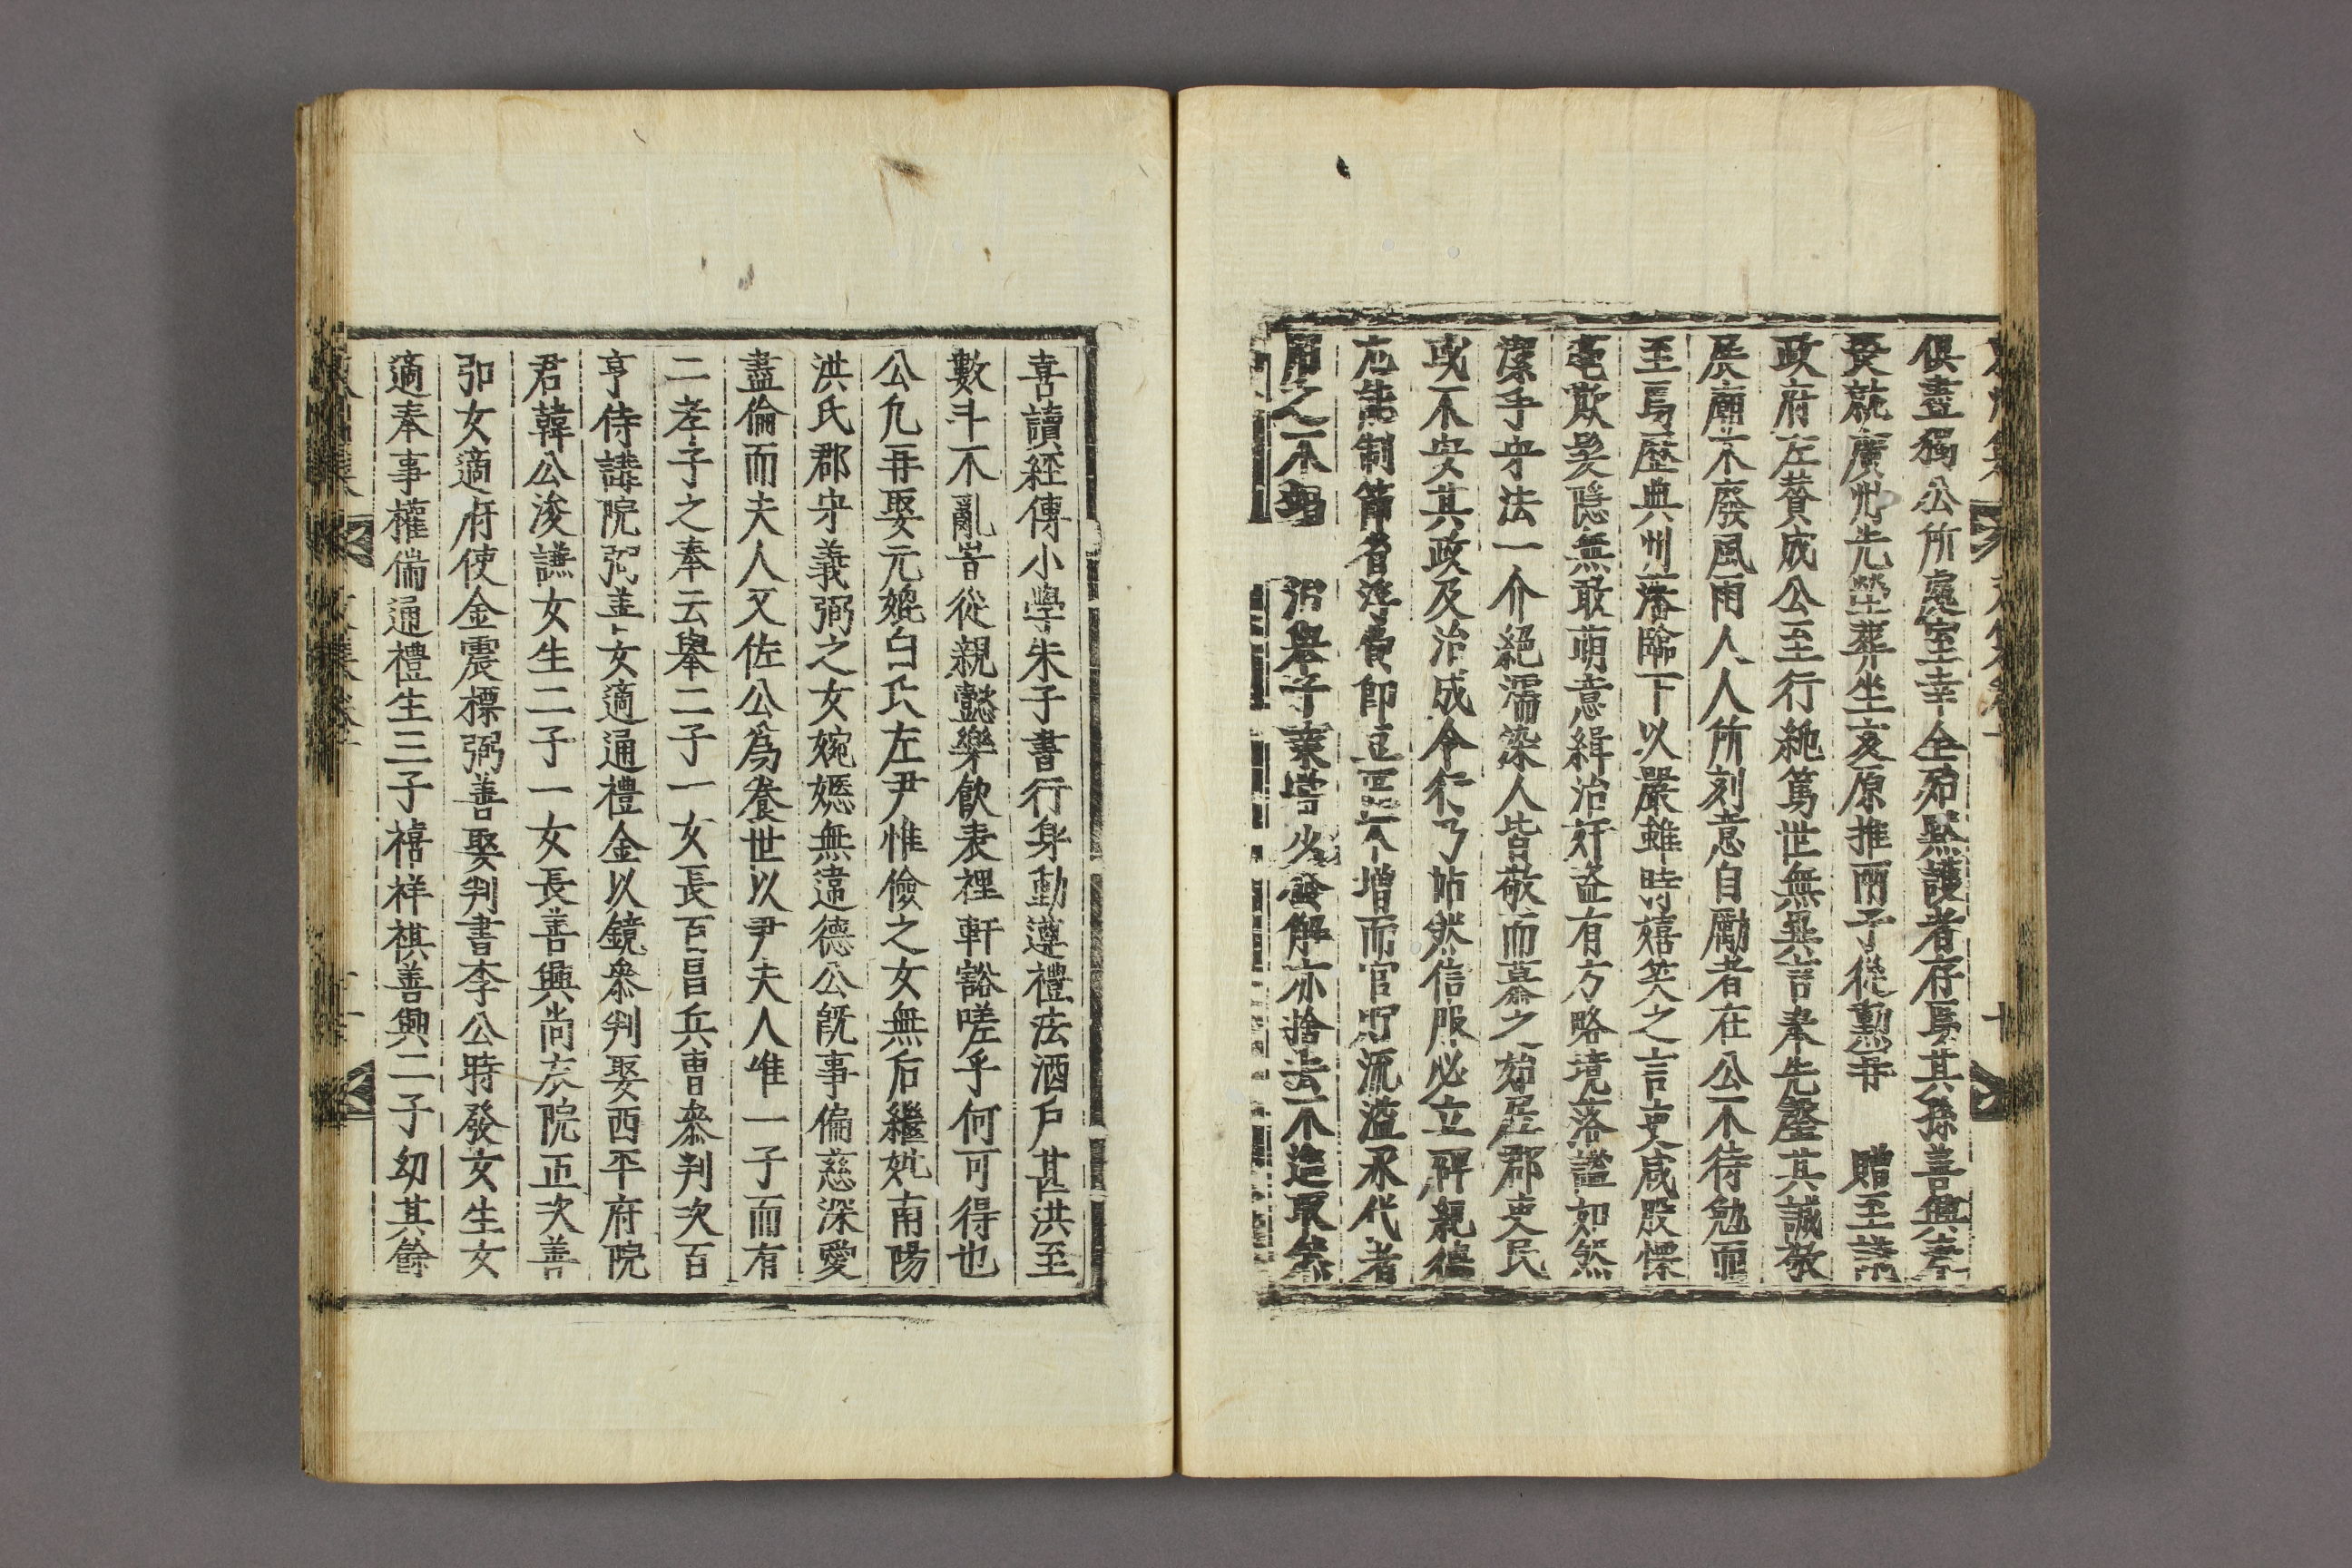 俱盡獨公所處室幸全殆默護者存焉其孫善興奉
喪就廣州先塋葬坐亥原推兩子從勳再 贈至議
政府左賛成公至行純篤世無異言奉先罄其誠敬
展廟不廢風雨人人所刻意自勵者在公不待勉而
至焉歷典州藩臨下以嚴雖時嬉笑之言吏咸股慄
毫欺髮隱無敢萌意緝治奸盜有方略境落謐如然
潔手守法一介絕濡染人皆敬而慕之始居郡吏民
或不安其政及治成令行乃帖然信服必立碑親德
尤能制節者浮費卽豆區不增而官帑流溢承代者
用之不竭 沿舉子業嘗少發解亦捨去不造取然
喜讀経傳小學朱子書行身動遵禮法酒户甚洪至
數斗不亂昔從親懿樂飮表裡軒豁嗟乎何可得也
公凢再娶元媲白氏左尹惟儉之女無后繼妣南陽
洪氏郡守義弼之女婉嫕無違德公旣事偏慈深愛
盡倫而夫人又佐公爲養世以尹夫人唯一子而有
二孝子之奉云舉二子一女長百昌兵曹叅判次百
亨侍講院弼善女適通禮金以鏡叅判娶西平府院
君韓公浚謙女生二子一女長善興尚衣院正次善
弘女適府使金震標弼善娶判書李公時發女生女
適奉事權偳通禮生三子禧祥祺善興二子幼其餘